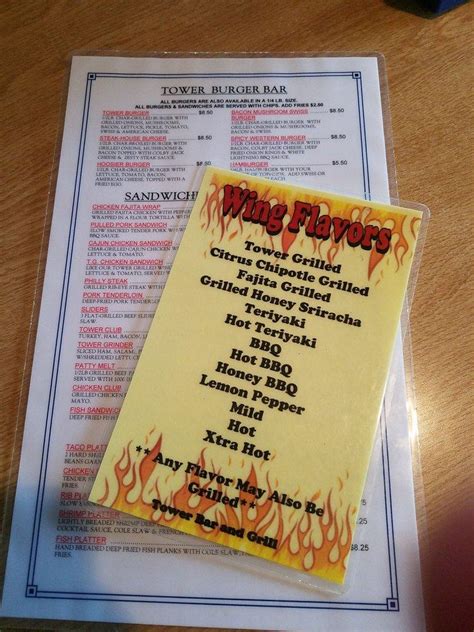 TOWER BURGER BAR
ALL BURGERS ARE ALSO AVAILABLE IN A 1/4 LB. SIZE.
ALL BURGERS & SANDWICHES ARE SERVED WITH CHIPS. ADD FRIES $2.50
TOWER BURGER $8.50
1/2LB CHAR-GRILLED BURGER WITH
GRILLED ONIONS, MUSHROOMS,
BACON, LETTUCE, PICKLE, TOMATO,
SWISS & AMERICAN CHEESE.
STEAK-HOUSE BURGER $8.50
1/2LB CHAR-BROILED BURGER WITH
GRILLED ONIONS, MUSHROOMS &
BACON TOPPED WITH COLBY JACK
CHEESE & ZESTY STEAK SAUCE.
HOOSIER BURGER
1/2LB CHAR-GRILLED BURGER WITH
LETTUCE, TOMATO, BACON,
AMERICAN CHEESE, TOPPED WITH A
FRIED EGG.
BACON MUSHROOM SWISS
BURGER $8.50
1/2LB CHAR-GRILLED BURGER WITH
GRILLED ONIONS & MUSHROOMS,
BACON & SWISS CHEESE.
SPICY WESTERN BURGER $8.50
1/2LB CHAR-GRILLED BURGER WITH
BACON, COLBY JACK CHEESE, DEEP
FRIED ONION RINGS & WHITE
LIGHTNING BBQ SAUCE.
HAMBURGER
SANDWICHE
CHICKEN FAJITA WRAP
GRILLED FAJITA CHICKEN WITH PEP
WRAPPED IN A FLOUR TORTILLA
PULLED PORK SANDWICH
SLOW SMOKED TENDER PORK WI
BBQ SAUCE.
CAJUN CHICKEN SANDWICH
CAJUN CHAR-GRILLED CHICKEN
LETTUCE & TOMATO.
T.G. CHICKEN SANDWICH
LIKE OUR TOWER GRILLED WI
LETTUCE & TOMATO.
PHILLY STEAK
GRILLED RIB-EYE STEAK WITH
PORK TENDERLOIN
DEEP FRIED OR GRILLED
SLIDERS
3 FLAT-GRILLED BEEF SLIDERS
SLAW.
TOWER CLUB
TURKEY, HAM, BACON,
TOWER GRINDER
SLICED HAM, SALAM
W/SHREDDED LETTUC
PATTY MELT
1/2LB GRILLED BEEF
SERVED WITH
CHICKEN CLUB
GRILLED CHICKEN
MAYO.
FISH SANDWIC
DEEP FRIED FISH
TACO PLATTE
2 HARD SHELL
BEANS GARNI
CHICKEN
TENDER
FRIES.
RIB PL
SLOW
SHRIMP PLATTER
LIGHTLY BREADED SHRIMP DEEP
COCKTAIL SAUCE, COLE SLAW & FRENCH
FISH PLATTER $8.25
HAND BREADED DEEP FRIED FISH PLANKS WITH COLE SLAW,
Wing Flavors
Tower Grilled
Citrus Chipotle Grilled
Fajita Grilled
Grilled Honey Sriracha
Teriyaki
Hot Teriyaki
BBQ
Hot BBQ
Honey BBQ
Lemon Pepper
Mild
Hot
Xtra Hot
** Any Flavor May Also Be
Grilled**
Tower Bar and Grill